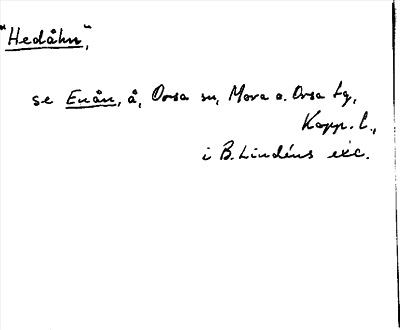 "Hedåhn",
se Enån, å, Orsa sn, Mora o. Orsa tg,
Kopp. l.,
i B. Lindéns exc.